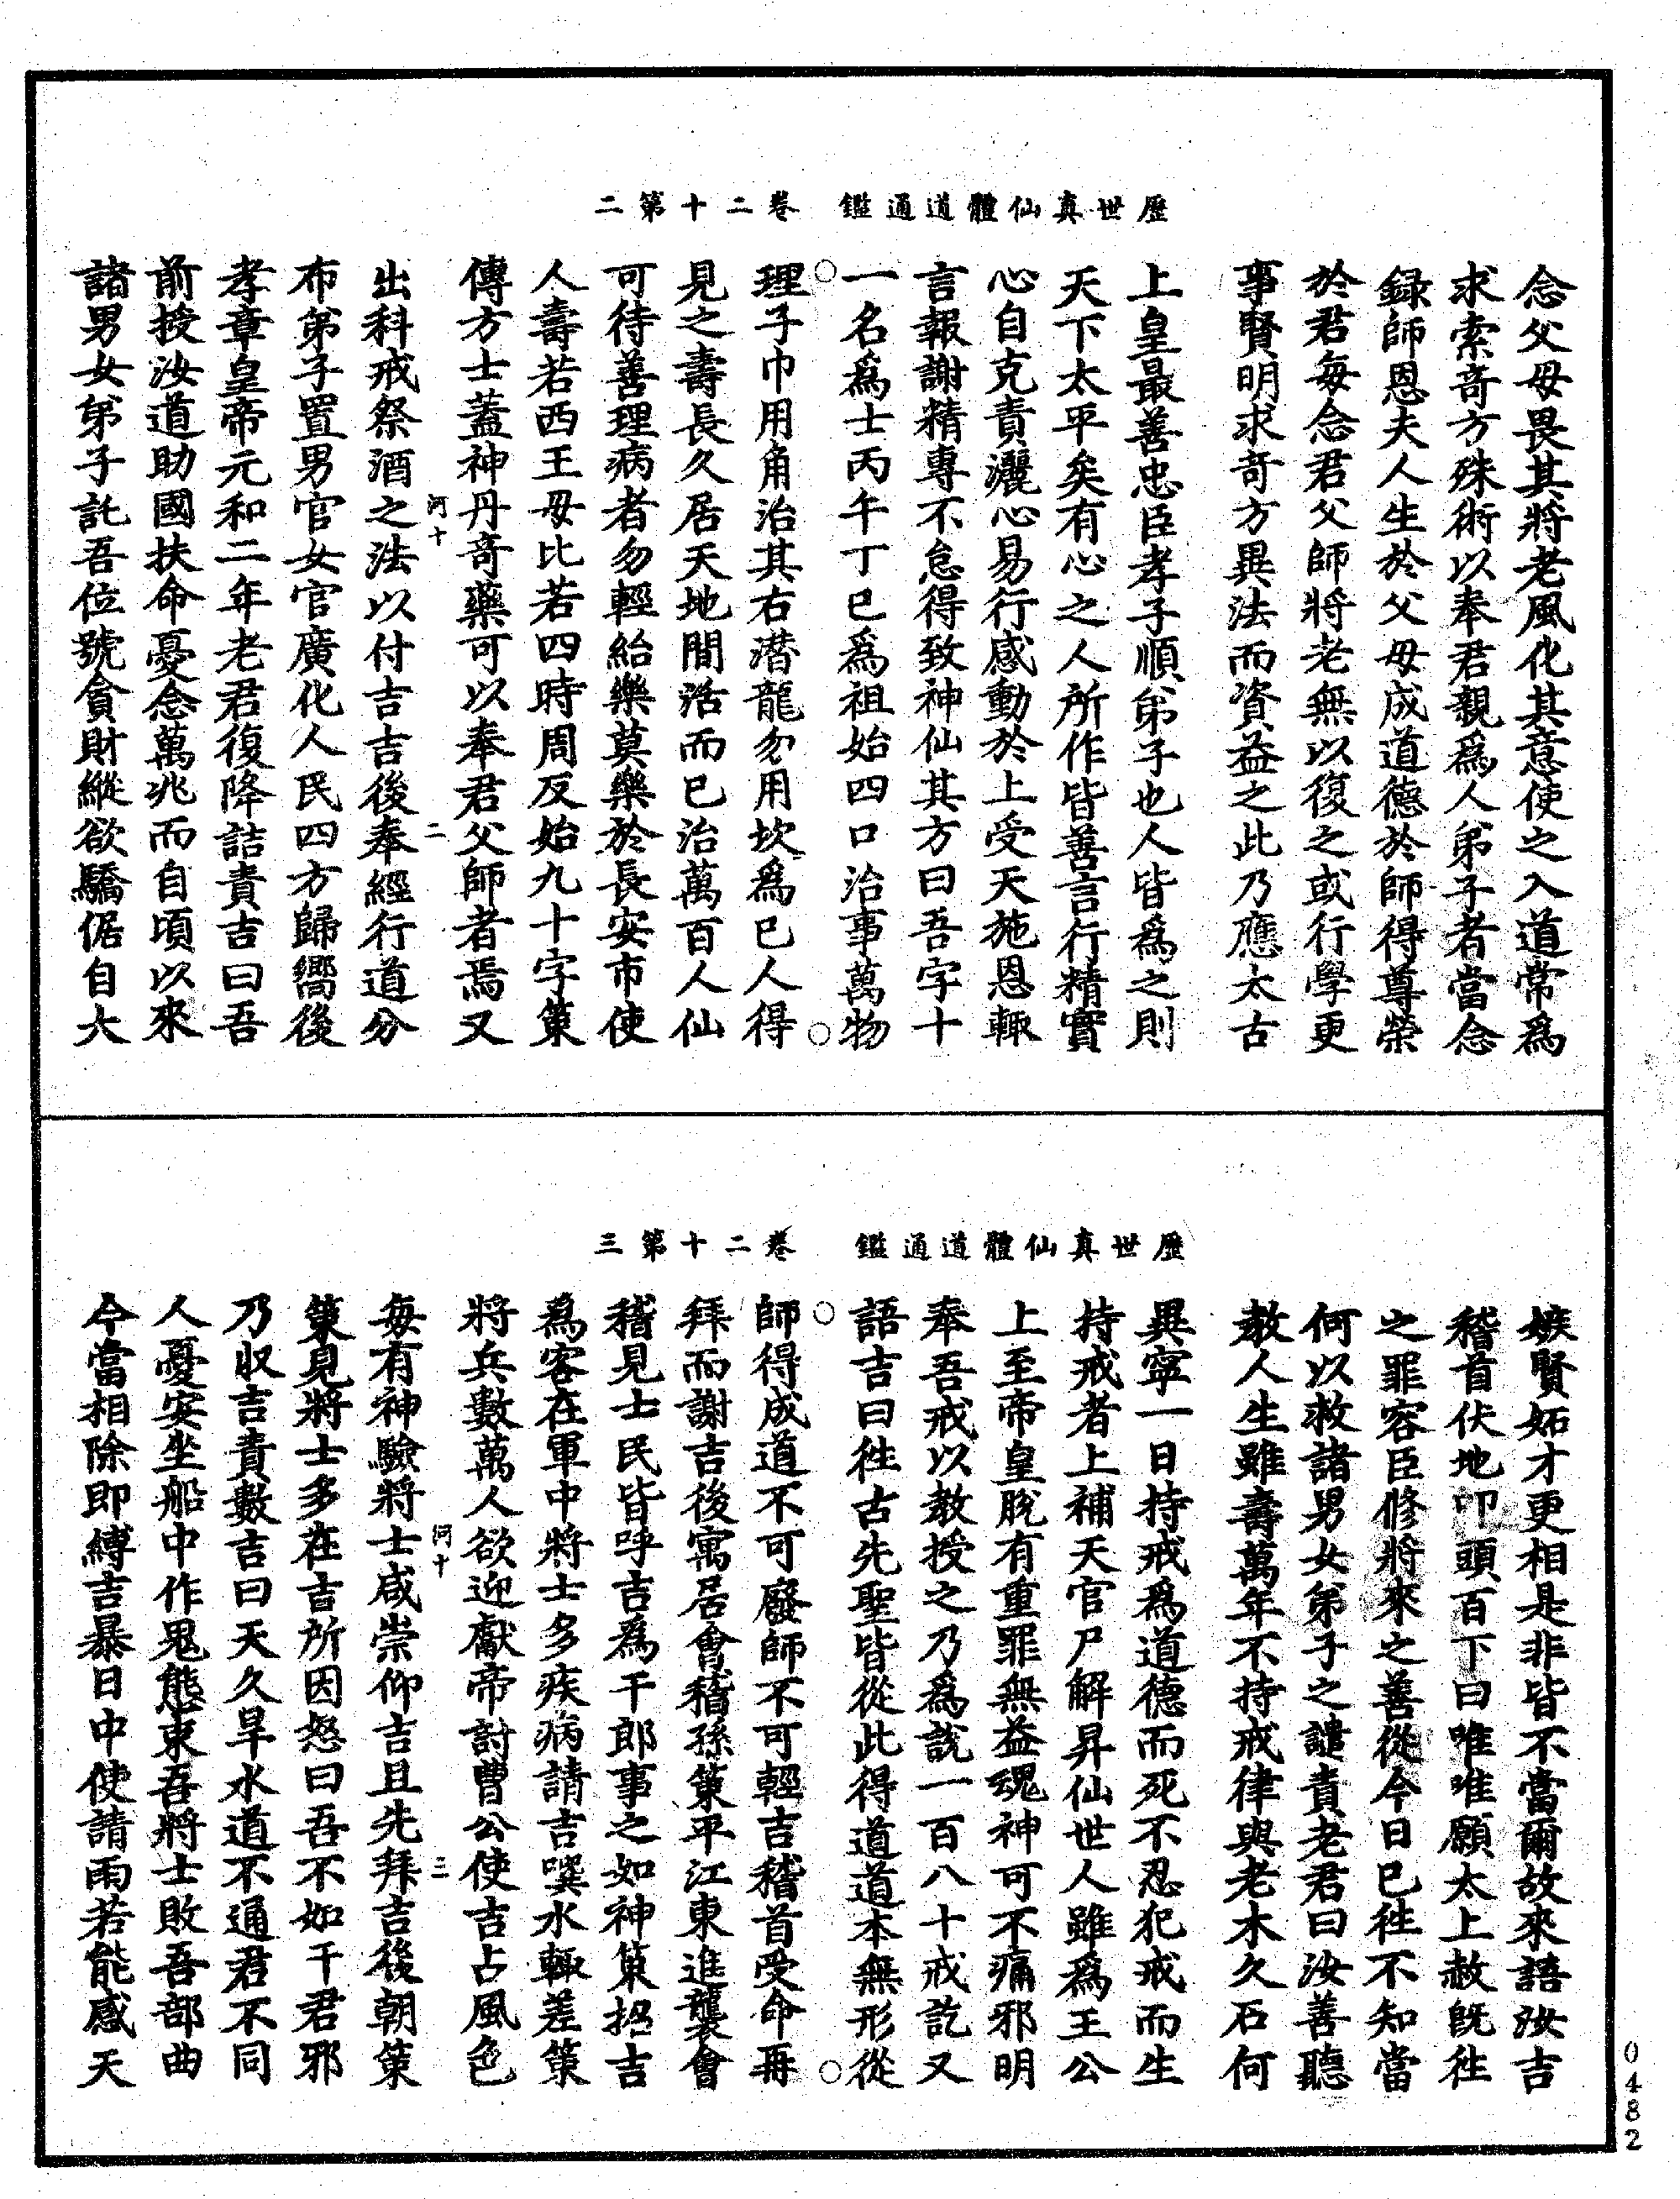 歷世真仙體道通鑑　卷二十第二
念父母畏其將老風化其意使之入道常為
求索奇方殊術以奉君親為人弟子者當念
録師恩夫人生於父母成道德於師得尊榮
於君每念君父師將老無以復之或行學更
事賢明求奇方異法而資益之此乃應太古
上皇最善忠臣孝子順弟子也人皆為之則
天下太平矣有心之人所作皆善言行精實
心自克責灑心易行感動於上受天施恩輒
言報謝精專不怠得致神仙其方曰吾字十
一名為士丙午丁巳為祖始四口治事萬物
理子巾用角治其右潜龍勿用坎為已人得
見之壽長久居天地間活而已治萬百人仙
可待善理病者勿輕紿樂莫樂於長安市使
人壽若西王母比若四時周反始九十字策
傳方士蓋神丹奇藥可以奉君父師者焉又
河十　二
出科戒祭酒之法以付吉吉後奉經行道分
布弟子置男官女官廣化人民四方歸嚮後
孝章皇帝元和二年老君復降詰責吉曰吾
前授汝道助國扶命憂念萬兆而自頃以來
諸男女弟子託吾位號貪財縱欲驕倨自大
歷世真仙體道通鑑　卷二十第三
嫉賢妬才更相是非皆不當爾故來語汝吉
稽首伏地叩頭百下曰唯唯願太上赦旣徃
之罪容臣修將來之善從今日已徃不知當
何以救諸男女弟子之譴責老君曰汝善聽
教人生雖壽萬年不持戒律與老木久石何
異寧一日持戒為道德而死不忍犯戒而生
持戒者上補天官尸解昇仙世人雖為王公
上至帝皇脫有重罪無益魂神可不痛邪明
奉吾戒以教授之乃為說一百八十戒訖又
語吉曰徃古先聖皆從此得道道本無形從
師得成道不可廢師不可輕吉稽首受命再
拜而謝吉後寓居會稽孫策平江東進襲會
稽見士民皆呼吉為干郎事之如神策招吉
為客在軍中將士多疾病請吉噀水輒差策
將兵數萬人欲迎獻帝討曹公使吉占風色
河十　三
每有神驗將士咸崇仰吉且先拜吉後朝策
策見將士多在吉所因怒曰吾不如干君邪
乃収吉責數吉曰天久旱水道不通君不同
人憂安坐船中作鬼態束吾將士敗吾部曲
今當相除即縛吉暴日中使請雨若能感天
0482